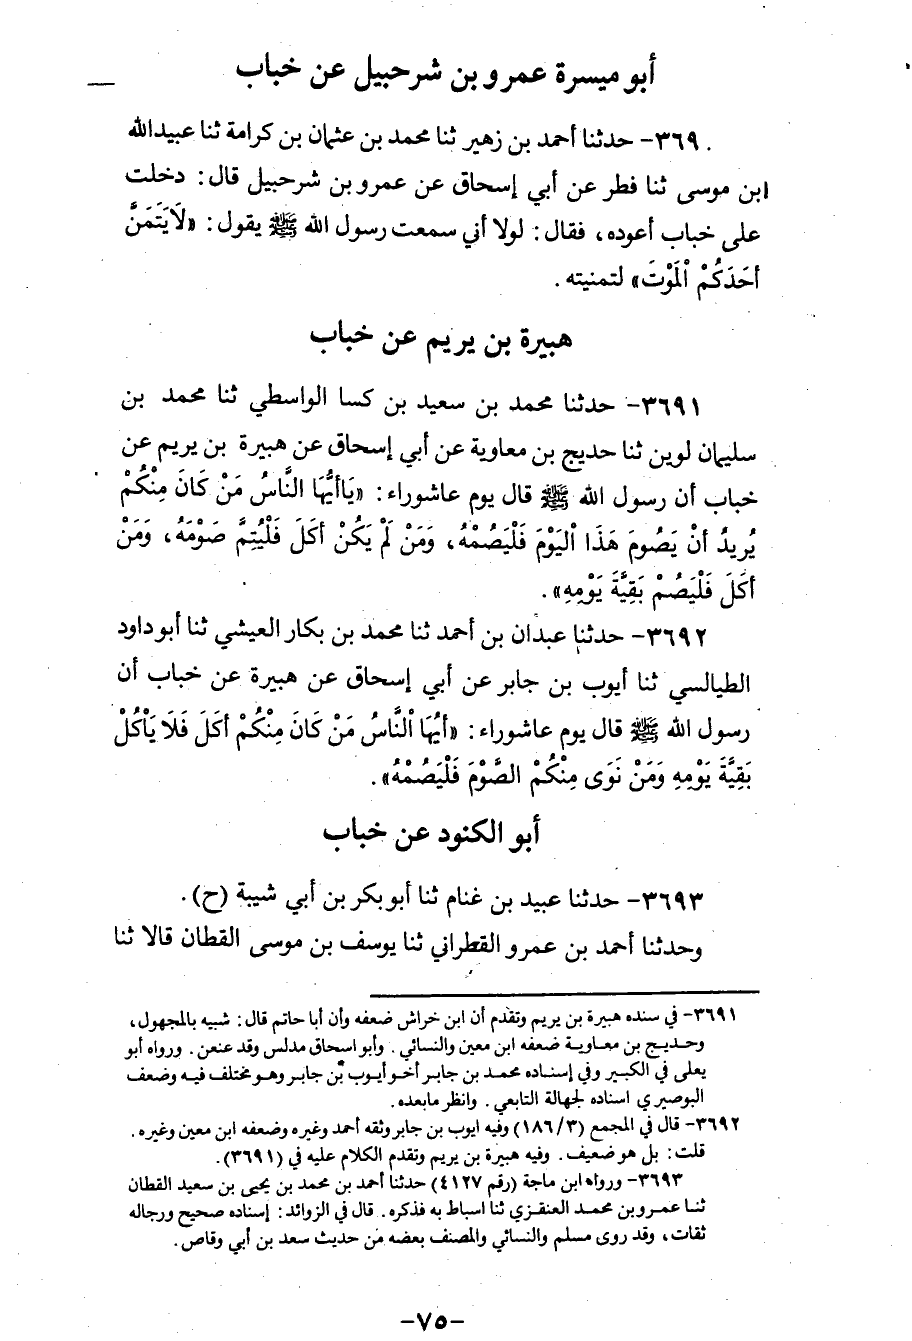 أبو ميسرة عمرو بن شرحبيل عن خباب
٣٦٩٠- حدثنا أحمد بن زهير ثنا محمد بن عثمان بن كرامة ثنا عبيدالله
ابن موسى ثنا فطر عن أبي إسحاق عن عمرو بن شرحبيل قال: دخلت
على خباب أعوده، فقال: لولا أني سمعت رسول الله ﷺ يقول: «لَا يَتَمَنَّ
أَحَدَكُمْ الْمَوْتَ» لتمنيته.
هبيرة بن يريم عن خباب
٣٦٩١- حدثنا محمد بن سعيد بن كسا الواسطي ثنا محمد بن
سليمان لوين ثنا حديج بن معاوية عن أبي إسحاق عن هبيرة بن يريم عن
خباب أن رسول الله ﷺ قال يوم عاشوراء: «يَاأَيُّهَا النَّاسُ مَنْ كَانَ مِنْكُمْ
يُرِيدُ أَنْ يَصُومَ هَذَا الْيَوْمَ فَلْيَصُمْهُ، وَمَنْ لَمْ يَكُنْ أَكَلَ فَلْيُتِمَّ صَوْمَهُ، وَمَنْ
أَكَلَ فَلْيَصُمْ بَقِيَّةَ يَوْمِهِ».
٣٦٩٢- حدثنا عبدان بن أحمد ثنا محمد بن بكار العيشي ثنا أبو داود
الطيالسي ثنا أيوب بن جابر عن أبي إسحاق عن هبيرة عن خباب أن
رسول الله ﷺ قال يوم عاشوراء: «أَيُّهَا النَّاسُ مَنْ كَانَ مِنْكُمْ أَكَلَ فَلَا يَأْكُلْ
بَقِيَّةَ يَوْمِهِ وَمَنْ نَوَى مِنْكُمْ الصَّوْمَ فَلْيَصُمْهُ».
أبو الكنود عن خباب
٣٦٩٣- حدثنا عبيد بن غنام ثنا أبو بكر بن أبي شيبة (ح).
وحدثنا أحمد بن عمرو القطراني ثنا يوسف بن موسى القطان قالا ثنا
٣٦٩١- في سنده هبيرة بن يريم وتقدم أن ابن خراش ضعفه وأن أبا حاتم قال: شبيه بالمجهول،
وحديج بن معاوية ضعفه ابن معين والنسائي. وأبو اسحاق مدلس وقد عنعن. ورواه أبو
يعلى في الكبير وفي إسناده محمد بن جابر أخو أيوب بن جابر وهو مختلف فيه وضعف
البوصيري اسناده لجهالة التابعي. وانظر مابعده.
٣٦٩٢- قال في المجمع (٣/١٨٦) وفيه ايوب بن جابر وثقه أحمد وغيره وضعفه ابن معين وغيره.
قلت: بل هو ضعيف. وفيه هبيرة بن يريم وتقدم الكلام عليه في (٣٦٩١).
٣٦٩٣- ورواه ابن ماجة (رقم ٤١٢٧) حدثنا أحمد بن محمد بن يحيى بن سعيد القطان
ثنا عمرو بن محمد العنقزي ثنا اسباط به فذكره. قال في الزوائد: إسناده صحيح ورجاله
ثقات، وقد روى مسلم والنسائي والمصنف بعضه من حديث سعد بن أبي وقاص.
-٧٥-